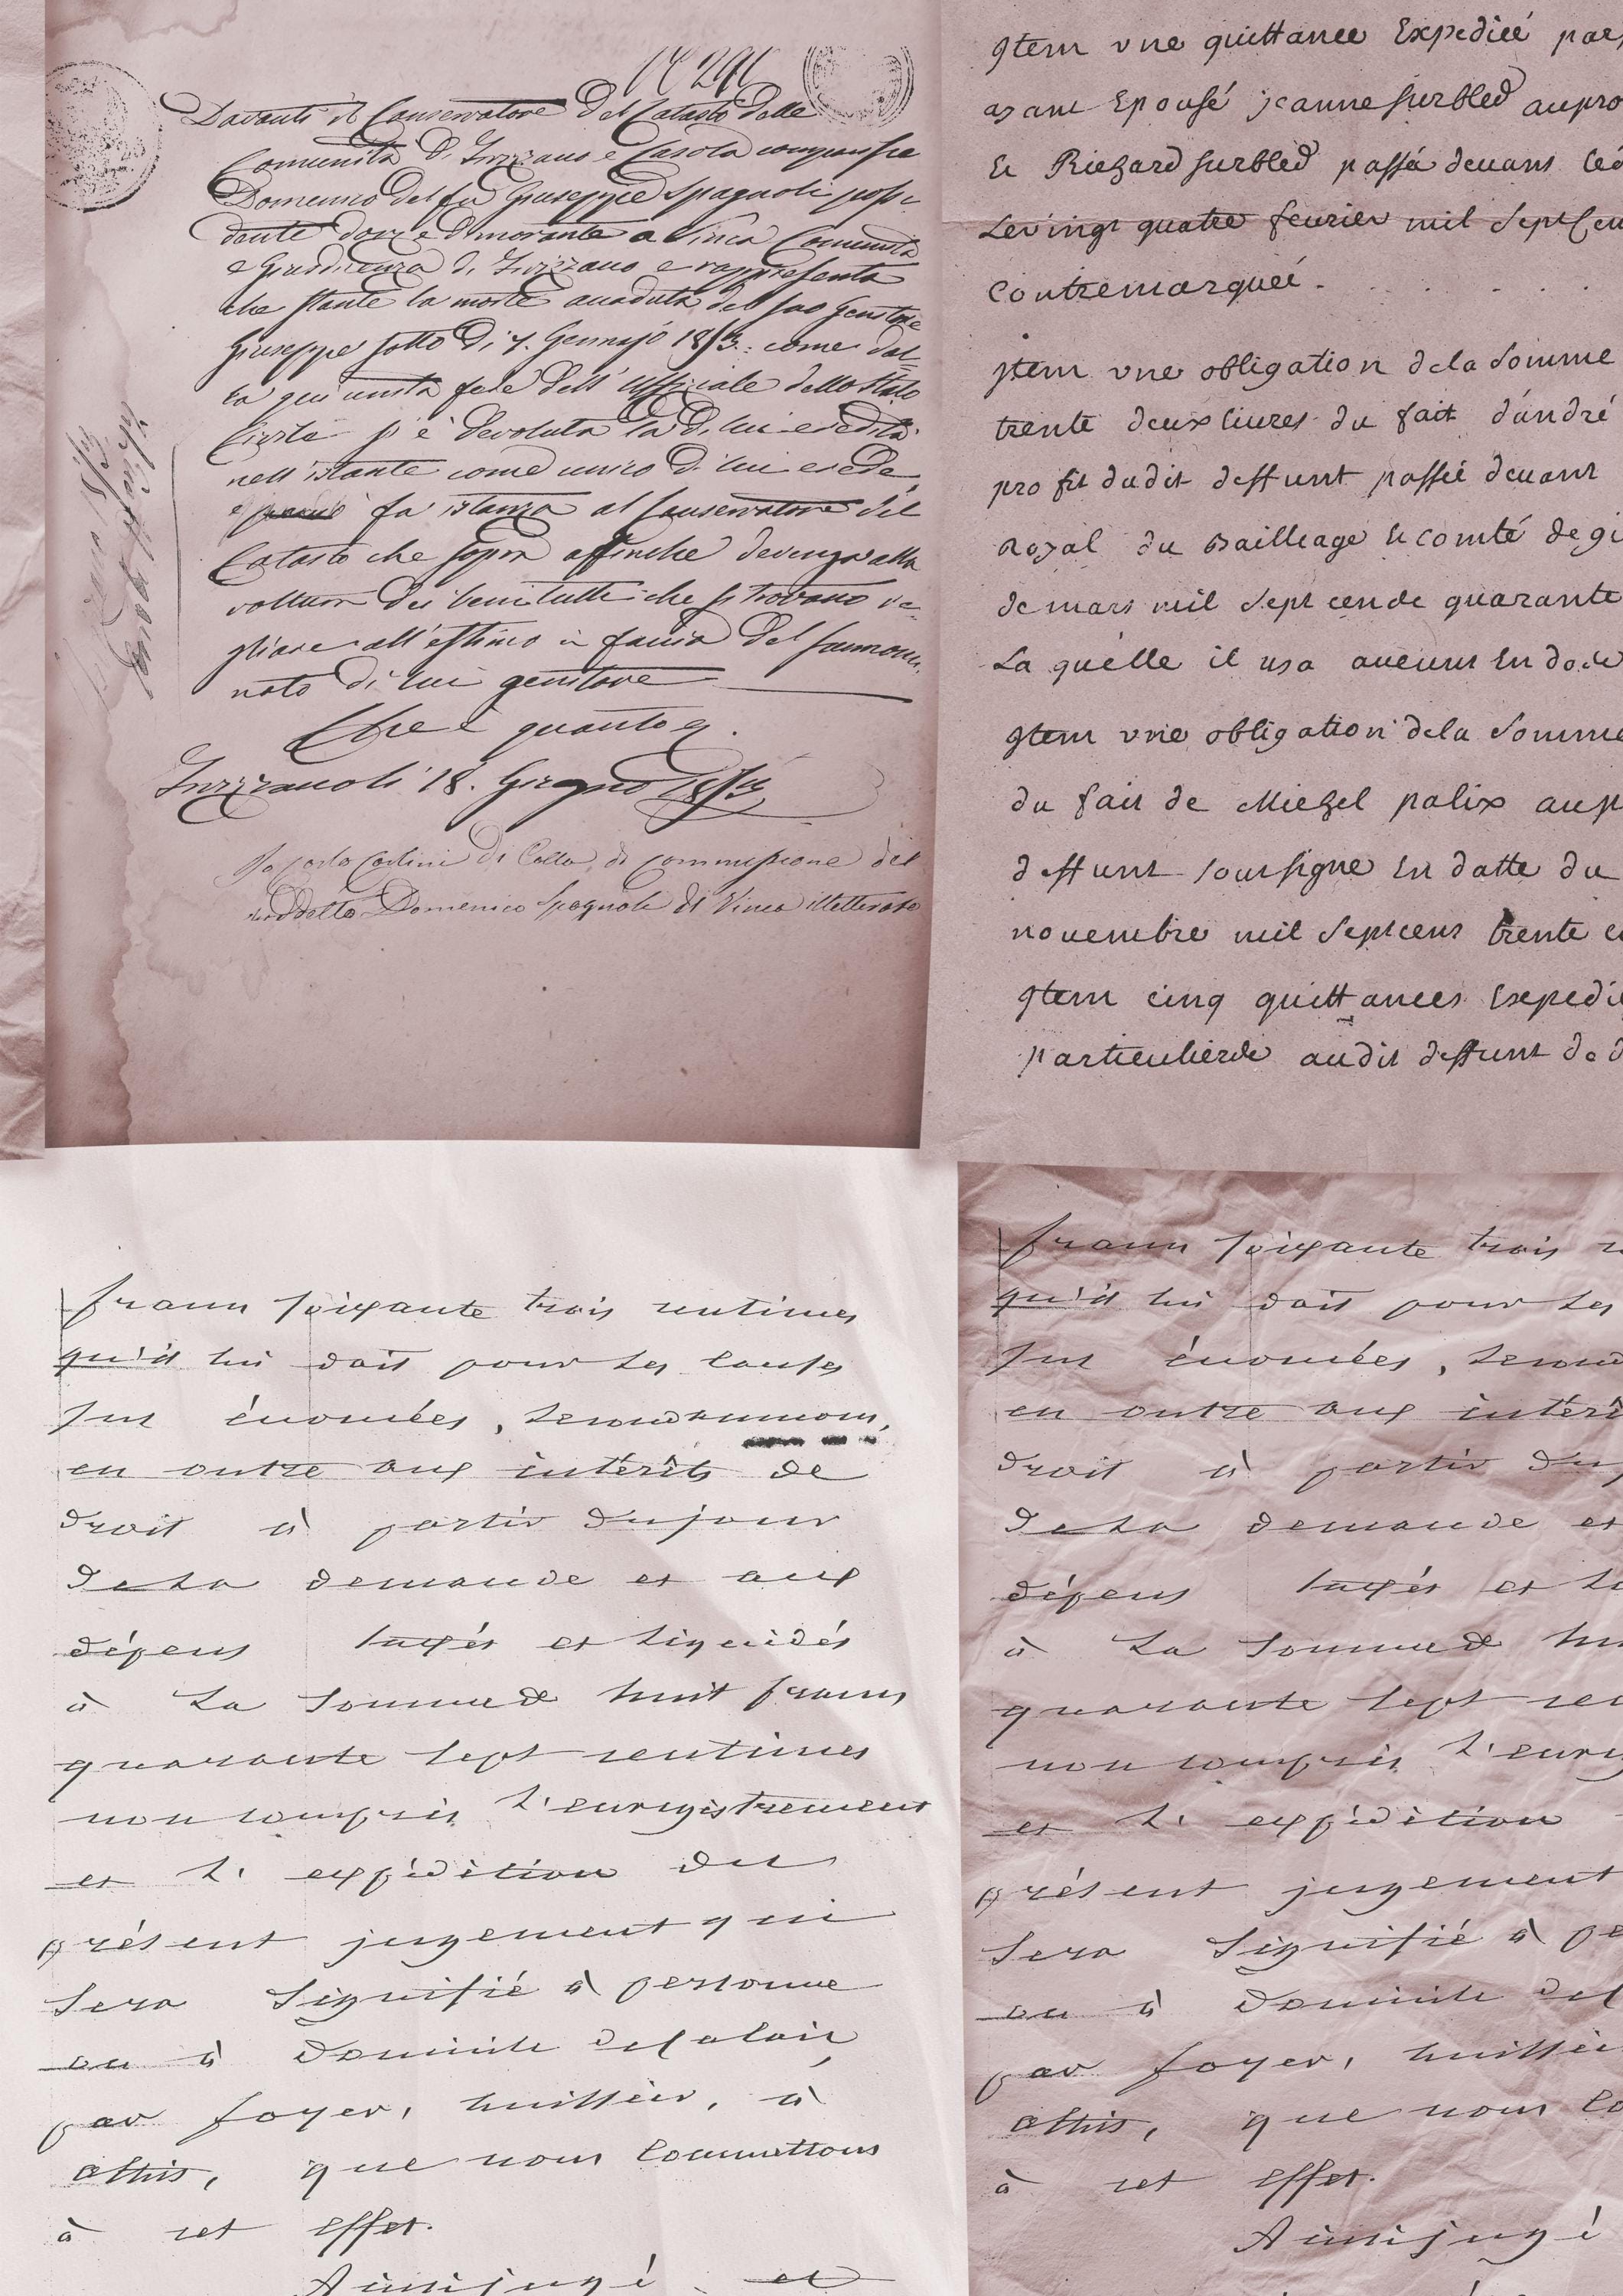 Davanti il Conservatore del Catasto delle
Comunità di Fivizzano e Casola comparisce
Domenico del fu Giuseppe Spagnoli possi-
dente dom e dimorante a Vinca Comunità
e Giusdicenza di Fivizzano e rappresenta
che stante la morte accaduta del suo genitore
Giuseppe sotto di 7. Gennajo come dal-
la qui unita fede dell' Uffiziale dello Stato
Civile s'è devoluta la di lui eredità
nell'istante come unico di lui erede
e fa istanza al Conservatore del
Catasto che sopra affinché devenga alla
voltura dei beni tutti che si trovano ve-
gliare all'estimo in faccia del sunnomi-
nato di lui genitore
Che è quanto
Fivizzano li 18. Giugno
Io Carlo di Colla di commissione del
suddetto Domenico Spagnoli di Vinca illetterato
Jtem vne quittance Expediéé par
ayant Epousé jeanne surbled aupro
Et Richard surbled passé deuant
Le vingt quatre feurier mil Sept Cen
Contremarquéé.
jtem vne obligation de la Somme
trente deux liures du fait d'andré
profit dudit deffunt passéé deuant
Royal du Bailleage Et comté de gi
de mars mil Sept cent quarante
La quelle il aucuns Endo
Jtem vne obligation de la Somme
du fait de Michel palix aup
deffunt soussigne En datte du
nouembre mil Septcens trente
Jtem cinq quittances Expedi
particulierde audit deffunt de
francs soixante trois centimes
qu'il lui doit pour les causes
sus énoncées,
en outre aux intérêts de
droit à partir du jour
de la demande et aux
dépens taxés et liquidés
à la somme de huit francs
quarante sept centimes
non compris l'enregistrement
et l'expédition du
présent jugement qui
sera signifié à personne
ou à domicile
par foyer, huissier, à
athis, que nous Commettons
à cet effet.
Ainsi jugé et
francs soixante trois
qu'il lui doit pour les
sus énoncées,
en outre aux intérê
droit à partir du
de la demande et
dépens taxés et
à la somme de
quarante sept cen
non compris l'enreg
et l'expédition
présent jugement
sera signifié à pe
ou à domicile
par foyer, huissie
athis, que nous Co
à cet effet.
Ainsi jugé